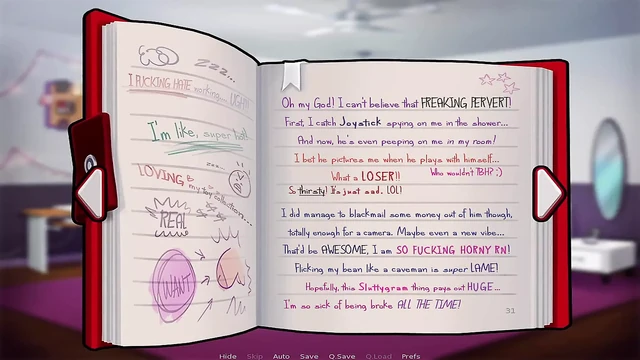 zzz...
I FUCKING HATE working... UGH!
I'm like, super hot!
LOVING my toy collection...
zzz...
REAL
WANT
Oh my God! I can't believe that FREAKING PERVERT!
First, I catch Joystick spying on me in the shower...
And now, he's even peeping on me in my room!
I bet he pictures me when he plays with himself...
What a LOSER!! Who wouldn't TBH? ;)
So thirsty! It's just sad. LOL!
I did manage to blackmail some money out of him though,
totally enough for a camera. Maybe even a new vibe...
That'd be AWESOME, I am SO FUCKING HORNY RN!
Flicking my bean like a caveman is super LAME!
Hopefully, this Sluttygram thing pays out HUGE...
I'm so sick of being broke ALL THE TIME!
31
Hide Skip Auto Save Q.Save Q.Load Prefs